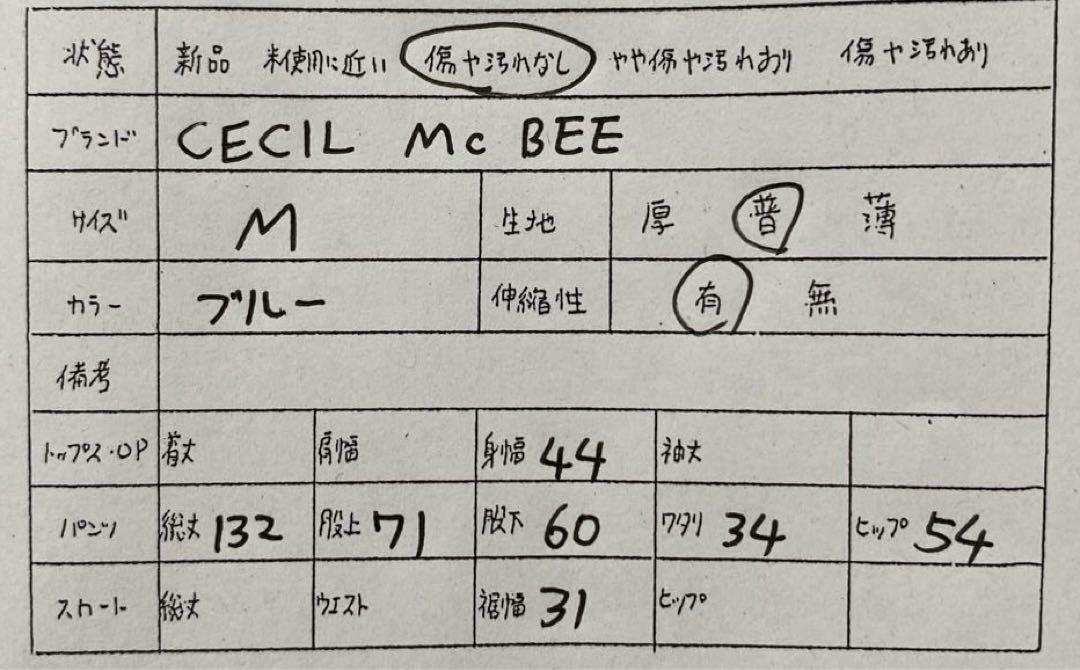 状態 新品 未使用に近い 傷や汚れなし やや傷や汚れあり 傷や汚れあり
ブランド CECIL Mc BEE
サイズ M 生地 厚 普 薄
カラー ブルー 伸縮性 有 無
備考
トップス・OP 着丈 肩幅 身幅 44 袖丈
パンツ 総丈 132 股上 71 股下 60 ワタリ 34 ヒップ 54
スカート 総丈 ウエスト 裾幅 31 ヒップ